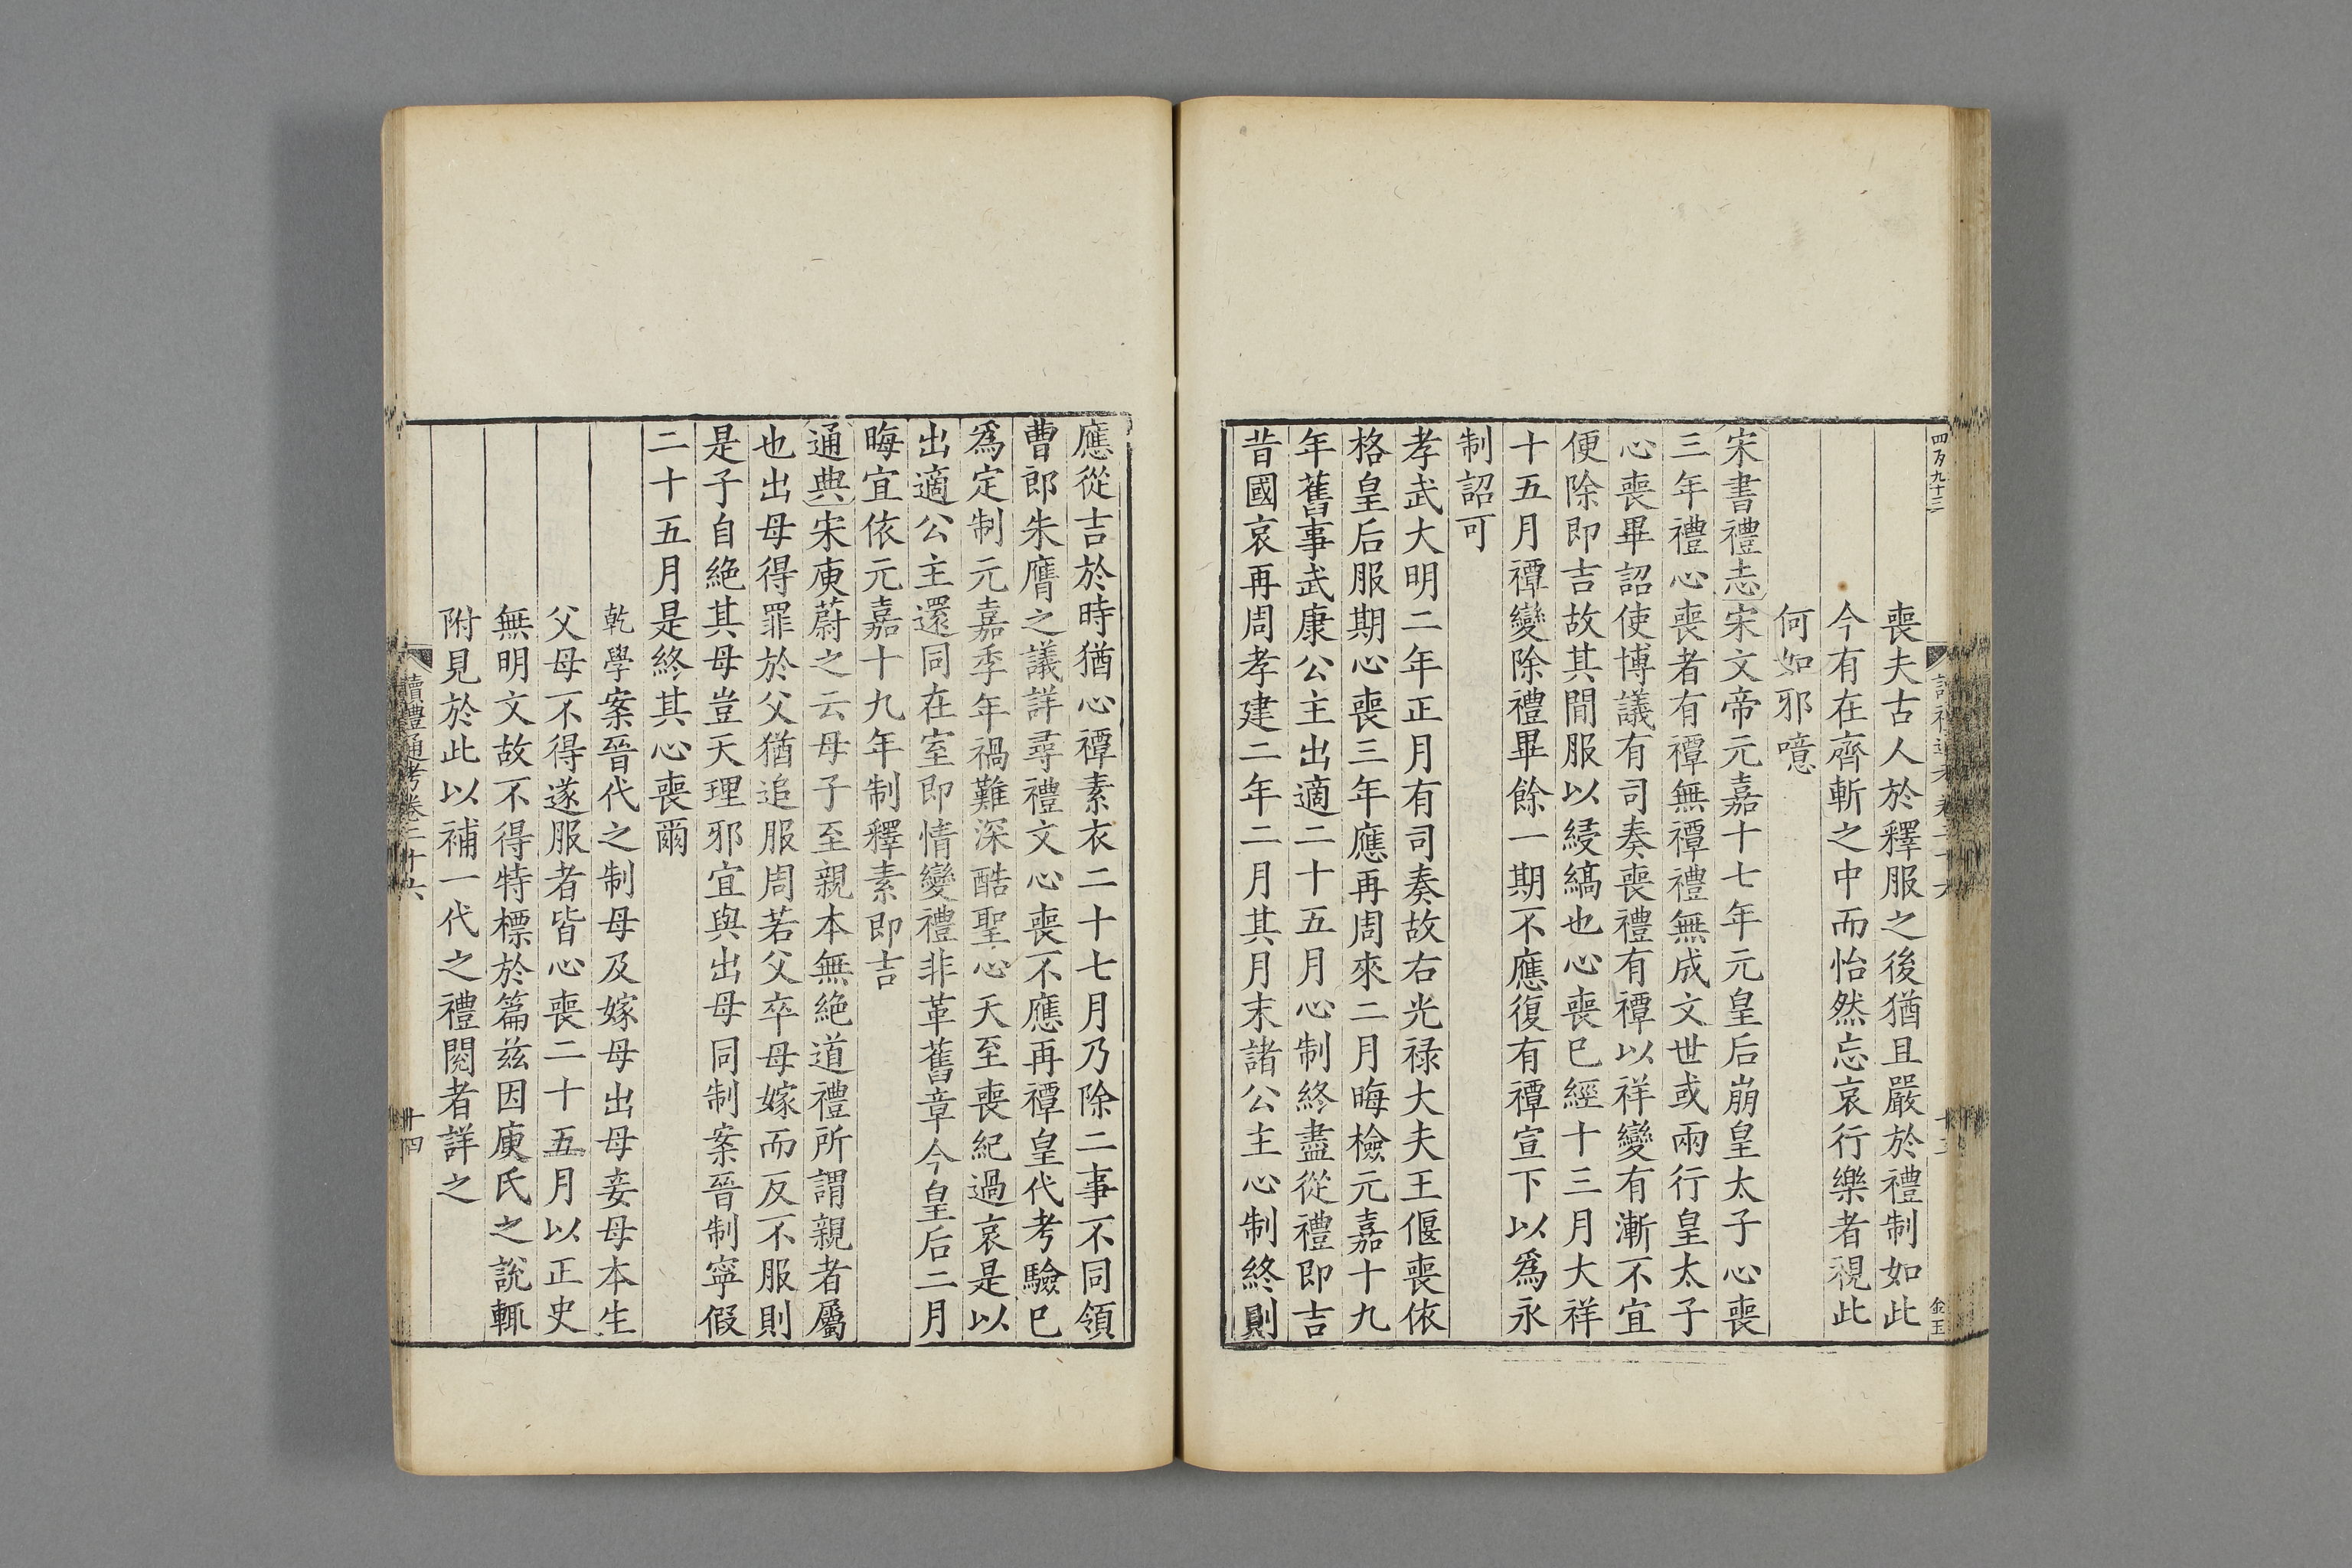 四百九十三
金玉
喪夫古人於釋服之後猶且嚴於禮制如此
今有在齊斬之中而怡然忘哀行樂者視此
何如邪噫
宋書禮志宋文帝元嘉十七年元皇后崩皇太子心喪
三年禮心喪者有禫無禫禮無成文世或兩行皇太子
心喪畢詔使博議有司奏喪禮有禫以祥變有漸不宜
便除即吉故其間服以綅縞也心喪已經十三月大祥
十五月禫變除禮畢餘一期不應復有禫宣下以爲永
制詔可
孝武大明二年正月有司奏故右光祿大夫王偃喪依
格皇后服期心喪三年應再周來二月晦檢元嘉十九
年舊事武康公主出適二十五月心制終盡從禮即吉
昔國哀再周孝建二年二月其月末諸公主心制終則
應從吉於時猶心禫素衣二十七月乃除二事不同領
曹郎朱膺之議詳尋禮文心喪不應再禫皇代考驗已
爲定制元嘉季年禍難深酷聖心天至喪紀過哀是以
出適公主還同在室即情變禮非革舊章今皇后二月
晦宜依元嘉十九年制釋素即吉
通典宋庾蔚之云母子至親本無絶道禮所謂親者屬
也出母得罪於父猶追服周若父卒母嫁而反不服則
是子自絶其母豈天理邪宜與出母同制案晉制寧假
二十五月是終其心喪爾
乾學案晉代之制母及嫁母出母妾母本生
父母不得遂服者皆心喪二十五月以正史
無明文故不得特標於篇茲因庾氏之說輒
附見於此以補一代之禮閱者詳之
讀禮通考卷二十六
十四